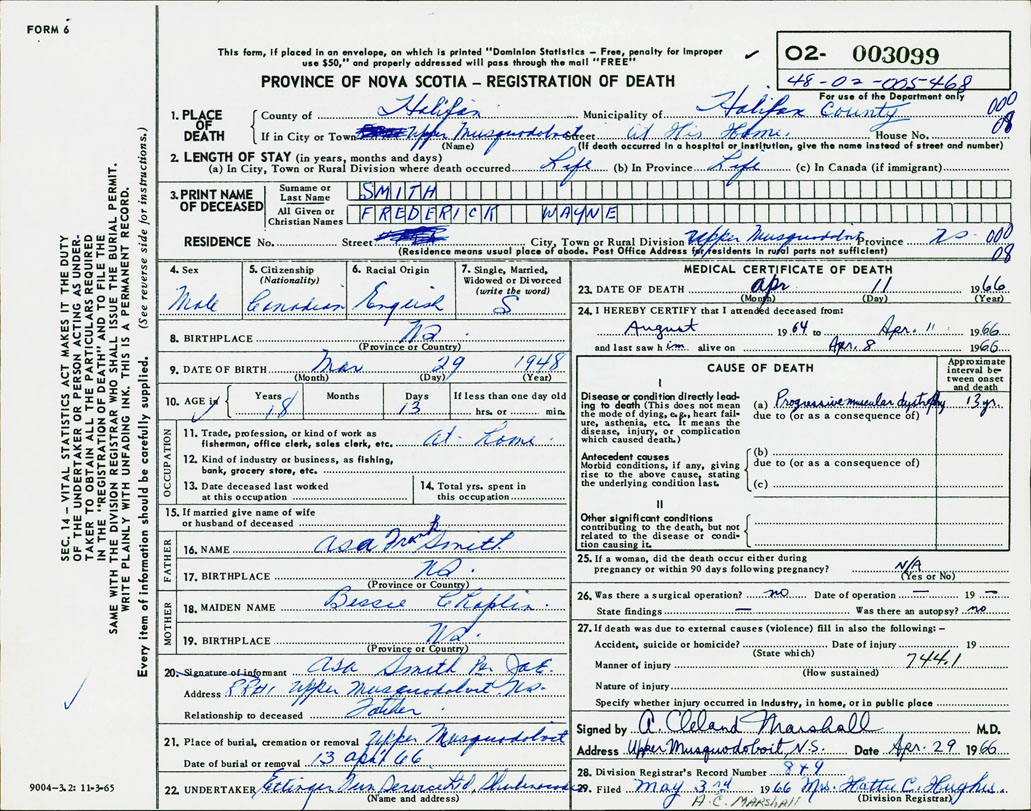 FORM 6
This form, if placed in an envelope, on which is printed "Dominion Statistics – Free, penalty for improper
use $50," and properly addressed will pass through the mail "FREE"
PROVINCE OF NOVA SCOTIA – REGISTRATION OF DEATH
✓ 02- 003099
48-02-005-468
For use of the Department only
1. PLACE OF DEATH
County of Halifax Municipality of Halifax County 000
If in City or Town Upper Musquodoboit Street at His Home. House No. 08
(Name) (If death occurred in a hospital or institution, give the name instead of street and number)
2. LENGTH OF STAY (in years, months and days)
(a) In City, Town or Rural Division where death occurred Life (b) In Province Life (c) In Canada (if immigrant)
3. PRINT NAME OF DECEASED
Surname or Last Name SMITH
All Given or Christian Names FREDERICK WAYNE
RESIDENCE No. Street City, Town or Rural Division Upper Musquodoboit Province NS 000
(Residence means usual place of abode. Post Office Address for residents in rural parts not sufficient) 08
4. Sex Male
5. Citizenship (Nationality) Canadian
6. Racial Origin English
7. Single, Married, Widowed or Divorced (write the word) S
8. BIRTHPLACE NS.
(Province or Country)
9. DATE OF BIRTH Mar 29 1948
(Month) (Day) (Year)
10. AGE in Years Months Days If less than one day old
18 13 hrs. or min.
OCCUPATION
11. Trade, profession, or kind of work as fisherman, office clerk, sales clerk, etc. at home.
12. Kind of industry or business, as fishing, bank, grocery store, etc.
13. Date deceased last worked at this occupation
14. Total yrs. spent in this occupation
15. If married give name of wife or husband of deceased
FATHER
16. NAME Asa Frank Smith
17. BIRTHPLACE NS.
(Province or Country)
MOTHER
18. MAIDEN NAME Bessie Chaplin.
19. BIRTHPLACE NS.
(Province or Country)
20. Signature of informant Asa Smith Per
Address RR#1 Upper Musquodoboit NS.
Relationship to deceased Father
21. Place of burial, cremation or removal Upper Musquodoboit
Date of burial or removal 13 April 66
22. UNDERTAKER Ettinger
(Name and address)
MEDICAL CERTIFICATE OF DEATH
23. DATE OF DEATH Apr. 11 1966
(Month) (Day) (Year)
24. I HEREBY CERTIFY that I attended deceased from:
August 1964 to Apr. 11 1966
and last saw him alive on Apr. 8 1966
CAUSE OF DEATH
Approximate interval between onset and death
I
Disease or condition directly leading to death (This does not mean the mode of dying, e.g., heart failure, asthenia, etc. It means the disease, injury, or complication which caused death.)
(a) Progressive muscular dystrophy 13 yr.
due to (or as a consequence of)
Antecedent causes
Morbid conditions, if any, giving rise to the above cause, stating the underlying condition last.
(b)
due to (or as a consequence of)
(c)
II
Other significant conditions contributing to the death, but not related to the disease or condition causing it.
25. If a woman, did the death occur either during
pregnancy or within 90 days following pregnancy? N/A
(Yes or No)
26. Was there a surgical operation? no Date of operation — 19 —
State findings — Was there an autopsy? no
27. If death was due to external causes (violence) fill in also the following: –
Accident, suicide or homicide? Date of injury 19
(State which) 744.1
Manner of injury
(How sustained)
Nature of injury
Specify whether injury occurred in industry, in home, or in public place
Signed by A. Cleland Marshall M.D.
Address Upper Musquodoboit, N.S. Date Apr. 29 1966
28. Division Registrar's Record Number 849
29. Filed May 3rd 1966 Mrs. Hattie C. Hughes.
A.C. MARSHALL (Division Registrar)
SEC. 14 – VITAL STATISTICS ACT MAKES IT THE DUTY
OF THE UNDERTAKER OR PERSON ACTING AS UNDER-
TAKER TO OBTAIN ALL THE PARTICULARS REQUIRED
IN THE "REGISTRATION OF DEATH" AND TO FILE THE
SAME WITH THE DIVISION REGISTRAR WHO SHALL ISSUE THE BURIAL PERMIT.
WRITE PLAINLY WITH UNFADING INK. THIS IS A PERMANENT RECORD.
Every item of information should be carefully supplied. (See reverse side for instructions.)
9004–3.2: 11-3-65